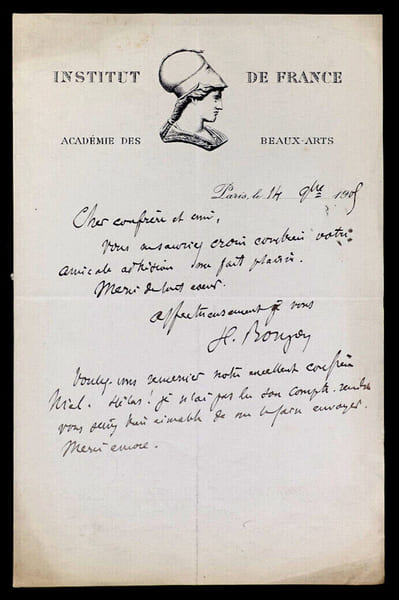 INSTITUT DE FRANCE
ACADÉMIE DES BEAUX-ARTS
Paris, le 14 9bre 190
Cher confrère et ami,
Vous ne sauriez croire combien votre
amicale adhésion me fait plaisir.
Merci de tout coeur.
affectueusement à vous
H.
Voulez-vous remercier notre excellent confrère
Hélas! je n'ai pas lu son compte-rendu
vous seriez bien aimable de me le faire envoyer.
Merci encore.